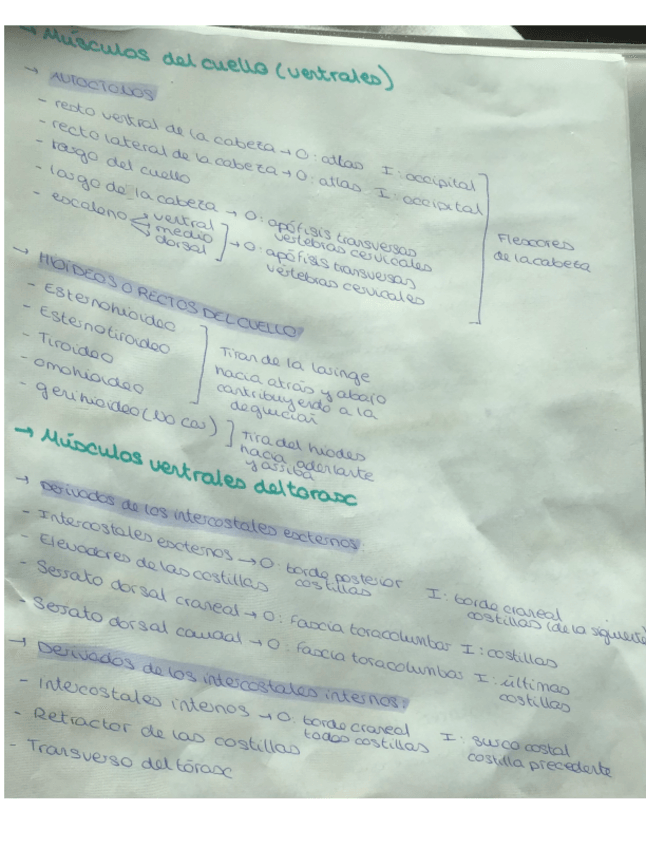 → Músculos del cuello (ventrales)
→ AUTÓCTONOS
- recto ventral de la cabeza → O: atlas I: occipital
- recto lateral de la cabeza → O: atlas I: occipital
- largo del cuello
- largo de la cabeza → O: apófisis transversas vértebras cervicales
- escaleno ventral medio dorsal → O: apófisis transversas vértebras cervicales
Flexores
de la cabeza
→ HIOIDEOS O RECTOS DEL CUELLO
- Esternohioideo
- Esternotiroideo
- Tiroideo
- omohioideo
Tiran de la laringe
hacia atrás y abajo
contribuyendo a la
- genihioideo (No cas) ] Tira del hiodes
hacia adelante
y arriba
→ Músculos ventrales del torax
→ Derivados de los intercostales externos:
- Intercostales externos → O: borde posterior costillas I: borde craneal costillas (de la siguiente)
- Elevadores de las costillas
- Serrato dorsal craneal → O: fascia toracolumbar I: costillas
- Serrato dorsal caudal → O: fascia toracolumbar I: últimas costillas
→ Derivados de los intercostales internos:
- Intercostales internos → O: borde craneal todas costillas I: surco costal costilla precedente
- Retractor de las costillas
- Transverso del tórax